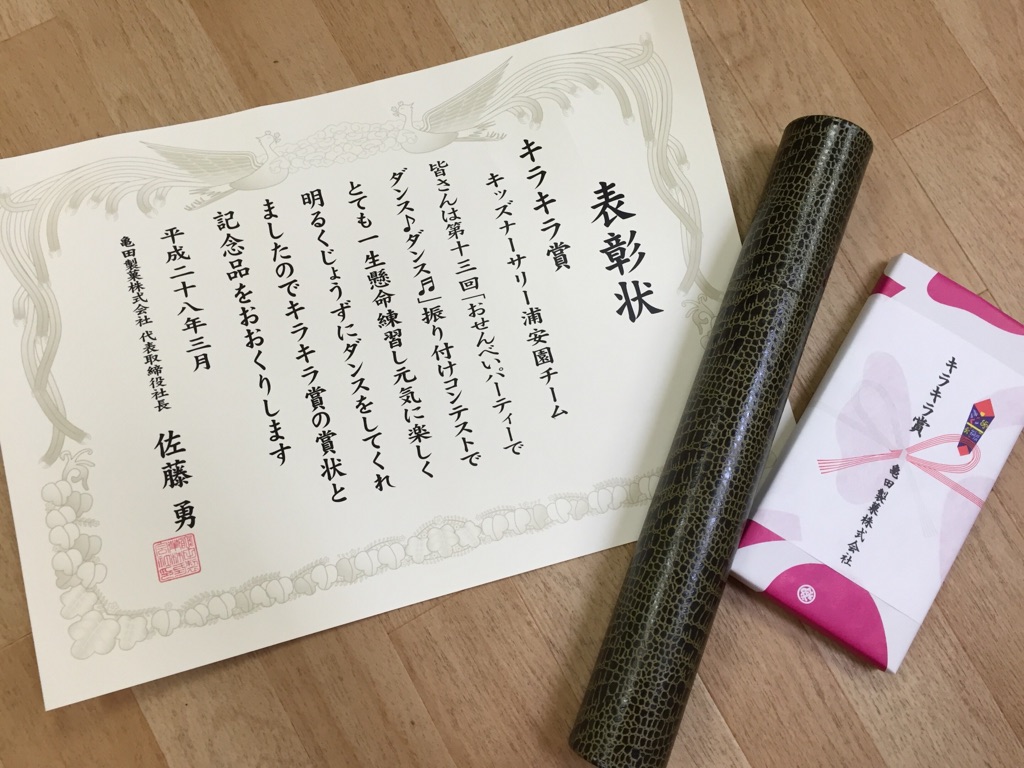 表彰状
キラキラ賞
キッズナーサリー浦安園チーム
皆さんは第十三回「おせんべいパーティーで
ダンス♪ダンス♬」振り付けコンテストで
とても一生懸命練習し元気に楽しく
明るくじょうずにダンスをしてくれ
ましたのでキラキラ賞の賞状と
記念品をおおくりします
平成二十八年三月
亀田製菓株式会社 代表取締役社長 佐藤 勇
キラキラ賞
亀田製菓株式会社